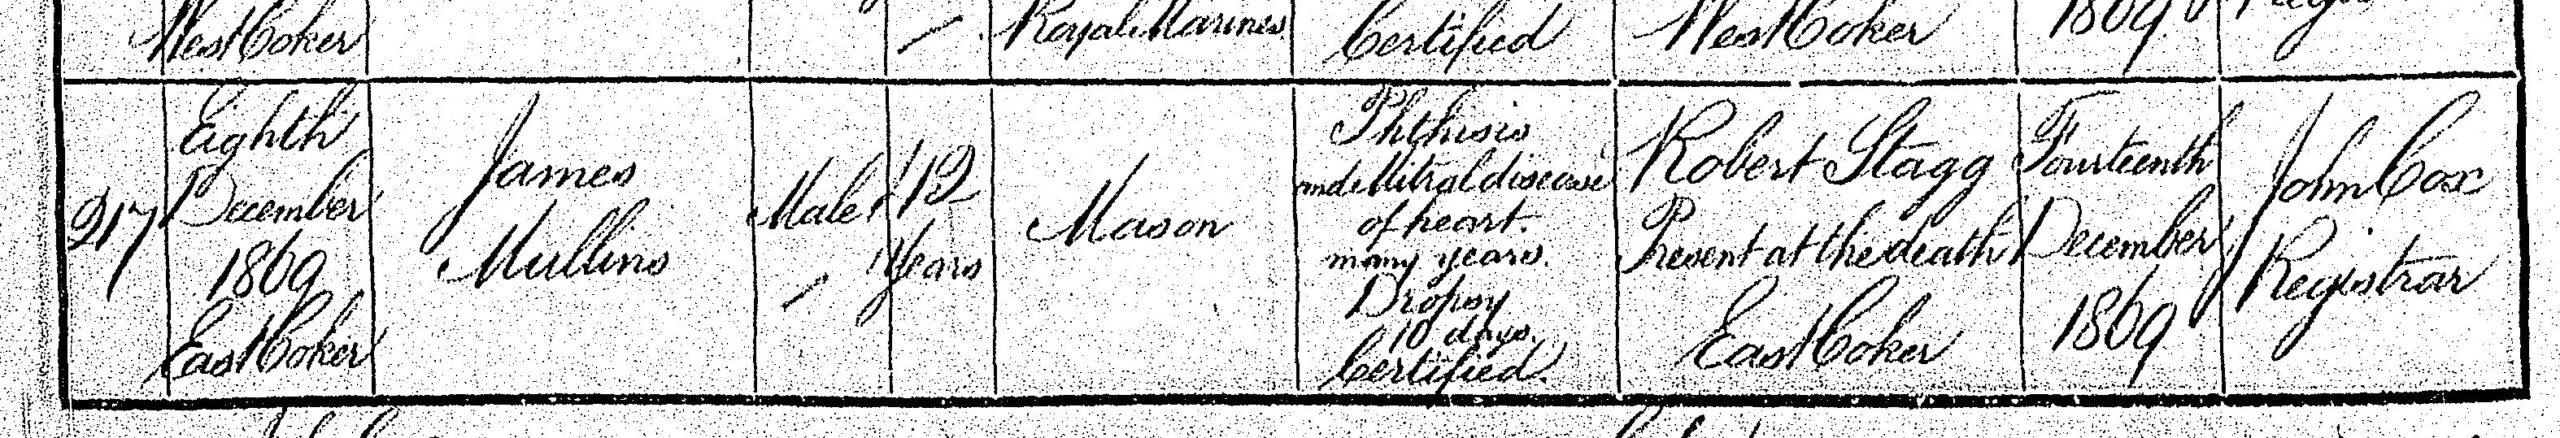 West Coker
Royal Marines
Certified
West Coker
1869
217
Eighth
December
1869
East Coker
James
Mullins
Male
Years
Mason
Phthisis
and Mitral disease
of heart.
many years.
Dropsy
10 days.
Certified.
Robert Stagg
Present at the death
East Coker
Fourteenth
December
1869
John Cox
Registrar